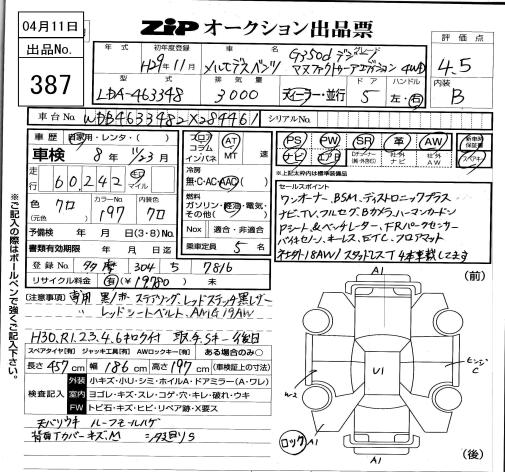 04月11日
出品No.
387
ZIP オークション出品票
年式 初年度登録 車名 評価点
H29年11月 メルセデスベンツ G350d 4WD 4.5
型式 排気量 ドア ハンドル 内装
LDA-463348 3000 ディーラー・並行 5 左・右 B
車台No. シリアルNo.
車歴 自家用・レンタ・( )
車検 8年 11/23月
走行 60,242 キロ マイル
色 クロ カラーNo. 197 内装色 クロ
(元色)
予備検 年 月 日(3・8)No.
書類有効期限 年 月 日迄
登録No. 多摩 304 5 7816
リサイクル料金 有(¥19780)未
フロア コラム インパネ AT MT 速
冷房 無・C・AC・AAC
燃料 ガソリン・軽油・電気・その他( )
Nox 適合・非適合
乗車定員 5 名
PS PW SR 革 AW 新車時保証書
ナビ エアB 社外ナビ 社外AW スペアキー
※上記太枠内は標準装備品
セールスポイント
ワンオーナー、BSM、ディストロニックプラス
ナビ、TV、フルセグ、Bカメラ、ハーマンカードン
Aシート、&ベンチレーター、FRパークセンサー
バイキセノン、キーレス、ETC、フロアマット
社外18AW スタッドレスT 4本車載してます
※ご記入の際はボールペンで強くご記入下さい。
注意事項 専用 黒/赤 ステアリング、レッドステッチ黒レザー
レッドシートベルト、AMG19AW
H30.R1.2.3.4.6 キロク付 取、キ、Sキー後日
スペアタイヤ【有】 ジャッキ工具【有】 AWロックキー【有】 ある場合のみ○
長さ 457cm 幅 186cm 高さ 197cm (車検証上の寸法)
検査記入
外装 小キズ・小U・シミ・ホイルA・ドアミラー(A・ワレ)
室内 ヨゴレ・キズ・スレ・コゲ・穴・キレ・破れ・ウキ
FW トビ石・キズ・ヒビ・リペア跡・X要ス
天バリウキ ルーフモールハゲ
背面Tカバーキズ、M
(前)
A1
U1
ヒンジ C
W2
ロック A1
A1
(後)